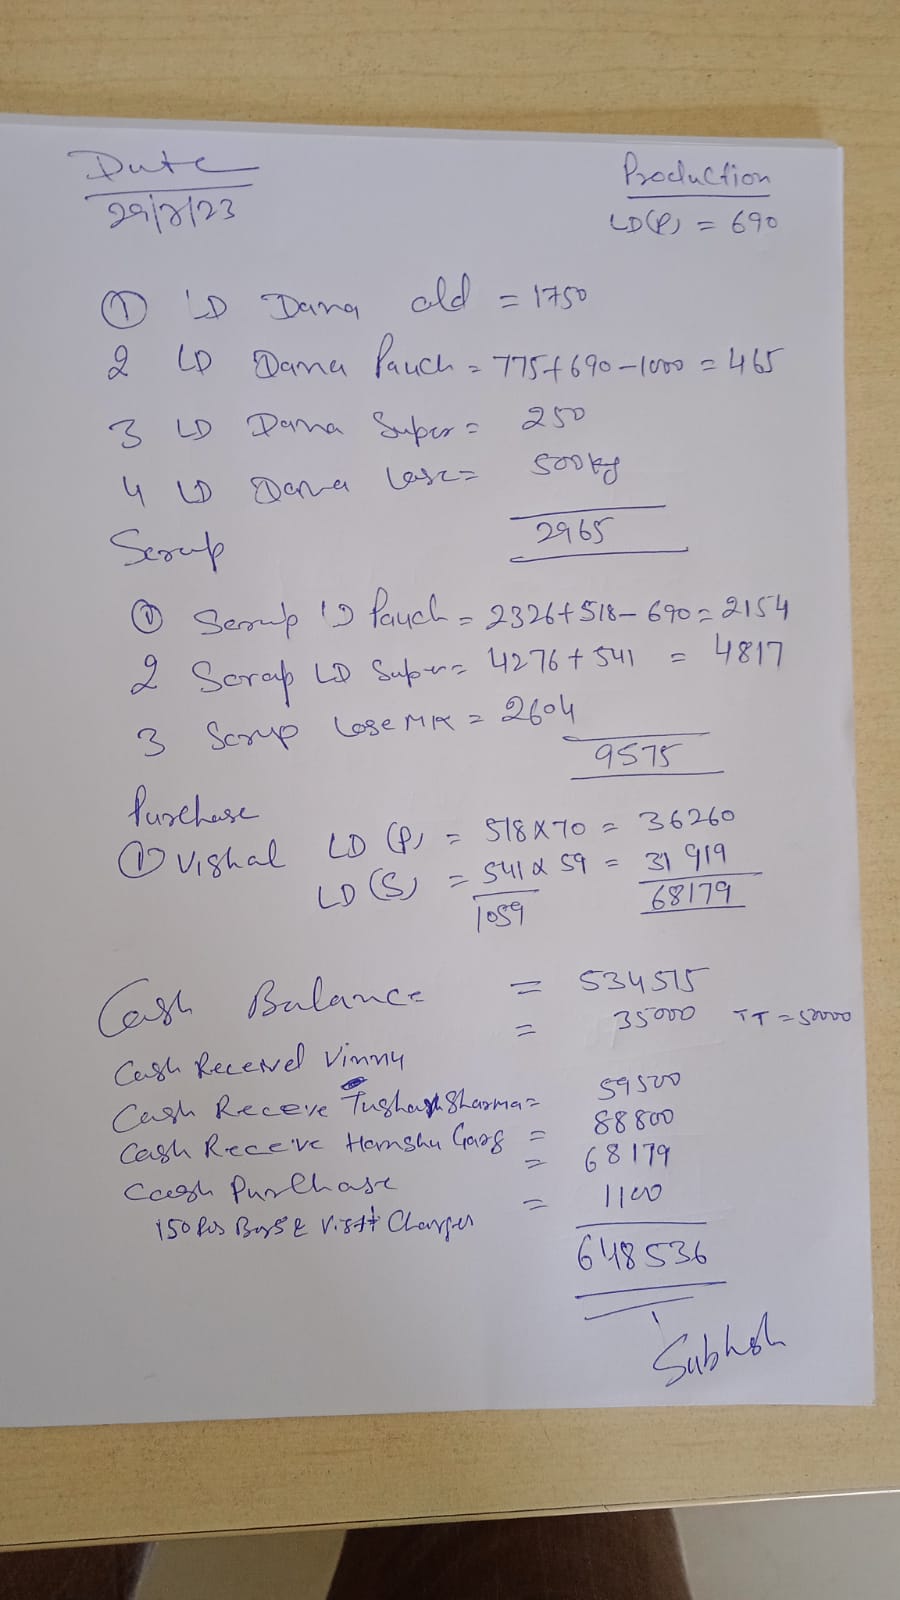 Date
Production
29/8/23
LD(P) = 690
① LD Dana old = 1750
2 LD Dana Pauch = 775+690-1000 = 465
3 LD Dana Super = 250
4 LD Dana Lose = 500kg
2965
Scrap
① Scrap LD Pauch = 2326+518-690 = 2154
2 Scrap LD Super = 4276+541 = 4817
3 Scrap Lose MIX = 2604
9575
Purchase
① Vishal LD (P) = 518x70 = 36260
LD (S) = 541 x 59 = 31919
1059 68179
Cash Balance = 534515
Cash Received Vinny = 35000 TT = 50000
Cash Receive Tushar Sharma = 59500
Cash Receive Hamshu Garg = 88800
Cash Purchase = 68179
150 Pcs Bags & Charges = 1100
648536
Subhsh